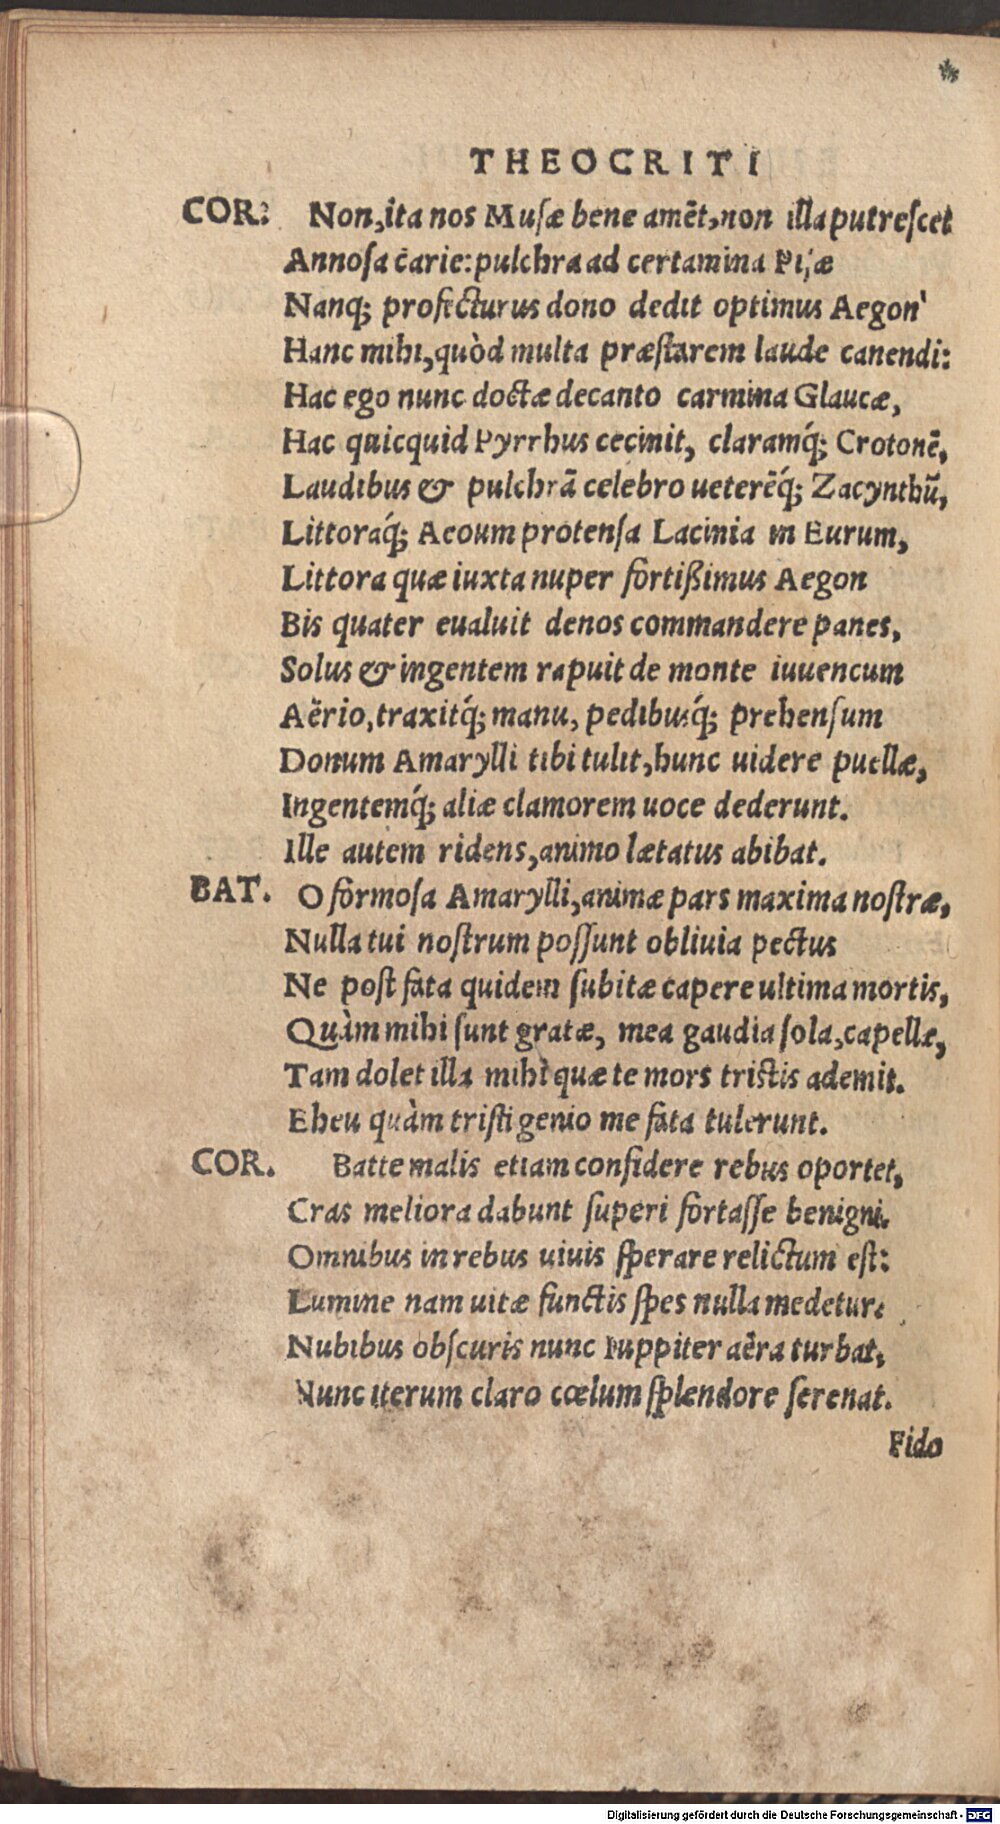 THEOCRITI
COR: Non, ita nos Musæ bene amēt, non illa putrescet
Annosa carie: pulchra ad certamina Pisæ
Nanq; profecturus dono dedit optimus Aegon
Hanc mihi, quòd multa præstarem laude canendi:
Hac ego nunc doctæ decanto carmina Glaucæ,
Hac quicquid Pyrrhus cecinit, claramq́; Crotonē,
Laudibus & pulchrā celebro ueterēq́; Zacynthū,
Littoraq́; Aeoum protensa Lacinia in Eurum,
Littora quæ iuxta nuper fortißimus Aegon
Bis quater eualuit denos commandere panes,
Solus & ingentem rapuit de monte iuuencum
Aërio, traxitq́; manu, pedibusq́; prehensum
Donum Amarylli tibi tulit, hunc uidere puellæ,
Ingentemq́; aliæ clamorem uoce dederunt.
Ille autem ridens, animo lætatus abibat.
BAT. O formosa Amarylli, animæ pars maxima nostræ,
Nulla tui nostrum possunt obliuia pectus
Ne post fata quidem subitæ capere ultima mortis,
Quàm mihi sunt gratæ, mea gaudia sola, capellæ,
Tam dolet illa mihi quæ te mors tristis ademit.
Eheu quàm tristi genio me fata tulerunt.
COR. Batte malis etiam confidere rebus oportet,
Cras meliora dabunt superi fortasse benigni.
Omnibus in rebus uiuis sperare relictum est:
Lumine nam uitæ functis spes nulla medetur:
Nubibus obscuris nunc Iuppiter aëra turbat,
Nunc iterum claro cœlum splendore serenat.
Fido
Digitalisierung gefördert durch die Deutsche Forschungsgemeinschaft - DFG